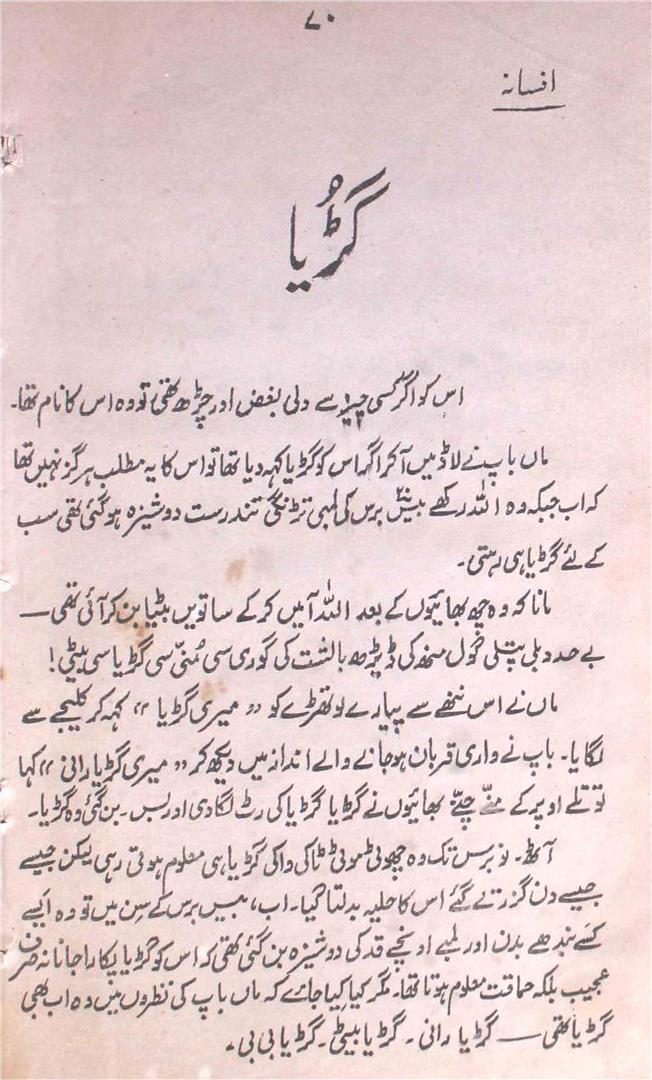 ۷۰
افسانہ
گُڑیا
اس کو اگر کسی چیز سے دلی بغض اور چڑھ تھی تو وہ اس کا نام تھا۔
ماں باپ نے لاڈ میں آکر اگر اس کو گڑیا کہہ دیا تھا تو اس کا یہ مطلب ہرگز نہیں تھا
کہ اب جبکہ وہ اللہ رکھے بیس برس کی لمبی تڑنگی تندرست دوشیزہ ہو گئی تھی سب
کے لئے گڑیا ہی رہتی۔
مانا کہ وہ چھ بھائیوں کے بعد اللہ آمیں کرکے ساتویں بٹیا بن کر آئی تھی —
بے حد دبلی پتلی گول منھ کی ڈیڑھ بالشت کی گوری سی مُنّی سی گڑیا سی بیٹی!
ماں نے اس ننھے سے پیارے لوتھڑے کو "میری گڑیا" کہہ کر کلیجے سے
لگایا۔ باپ نے واری قربان ہو جانے والے انداز میں دیکھ کر "میری گڑیا رانی" کہا
تو تلے اوپر کے منّے چنّے بھائیوں نے گڑیا گڑیا کی رٹ لگا دی اور بس۔ بن گئی وہ گڑیا۔
آٹھ۔ نو برس تک وہ چھوٹی موٹی ٹھاکی واکی گڑیا ہی معلوم ہوتی رہی لیکن جیسے
جیسے دن گزرتے گئے اس کا حلیہ بدلتا گیا۔ اب، بیس برس کے سِن میں تو وہ ایسے
کسے بندھے بدن اور لمبے اونچے قد کی دوشیزہ بن گئی تھی کہ اس کو گڑیا پکارا جانا نہ صرف
عجیب بلکہ حماقت معلوم ہوتا تھا۔ مگر کیا کِیا جائے کہ ماں باپ کی نظروں میں وہ اب بھی
گڑیا تھی — گڑیا رانی۔ گڑیا بیٹی۔ گڑیا بی بی۔